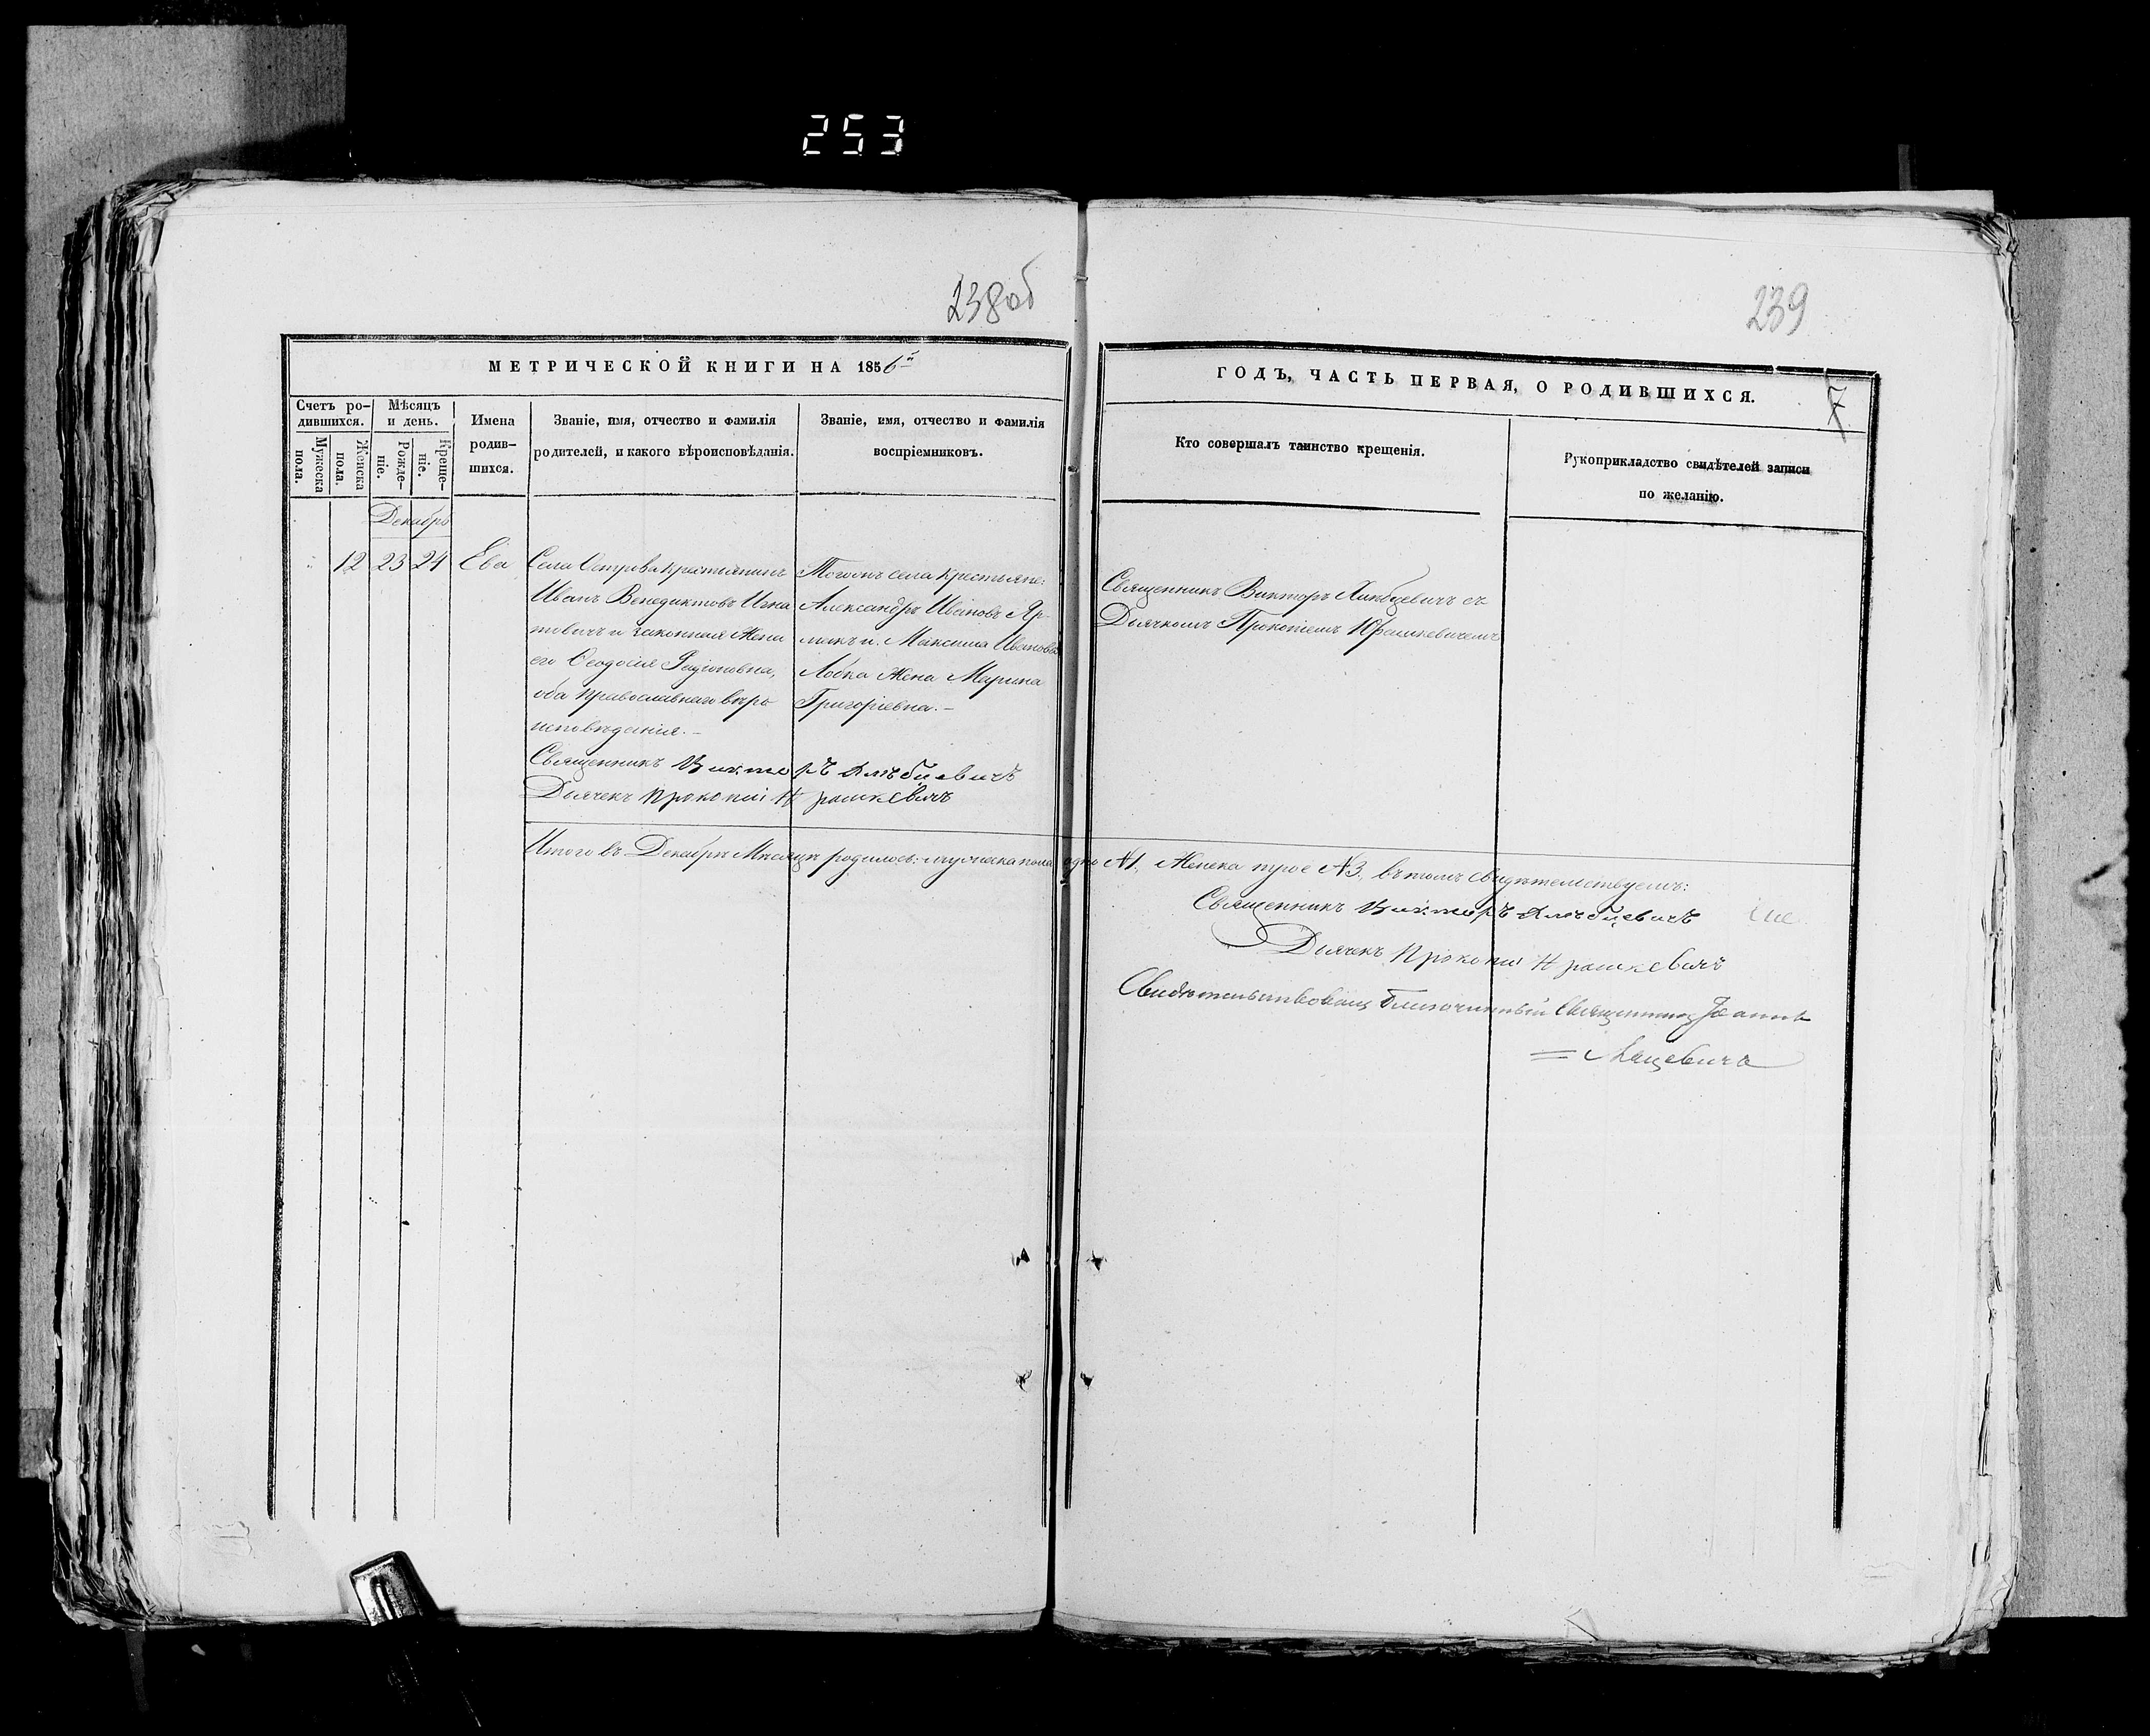 253
238об
239
7
МЕТРИЧЕСКОЙ КНИГИ НА 1856й
ГОДЪ, ЧАСТЬ ПЕРВАЯ, О РОДИВШИХСЯ.
Счетъ родившихся.
Мужеска пола.
Женска пола.
Мѣсяцъ и день.
Рожденіе.
Крещеніе.
Имена
родив-
шихся.
Званіе, имя, отчество и фамилія
родителей, и какого вѣроисповѣданія.
Званіе, имя, отчество и фамилія
воспріемниковъ.
Кто совершалъ таинство крещенія.
Рукоприкладство свидѣтелей записи
по желанію.
Декабрь
12 23 24 Ева
Села Острова крестьянинъ
Иванъ Венедиктовъ Игна
товичъ и законная жена
его Ѳеодосія Радіоновна,
оба православнаго вѣро
исповѣданія.–
Тогожъ села крестьяне:
Александръ Ивановъ Яр-
макъ и Максима Иванова
Лобка жена Марина
Григоріевна.–
Священникъ Викторъ съ
Дьячкомъ Прокопіемъ
Священникъ Викторъ
Дьячекъ Прокопій
Итого въ Декабрѣ Мѣсяцѣ родилось: мужеска пола одно №1, Женска трое №3, въ томъ свидѣтельствуемъ:
Священникъ Викторъ
Дьячекъ Прокопій
Свидѣтельствовалъ Благочинный Священникъ Іоаннъ